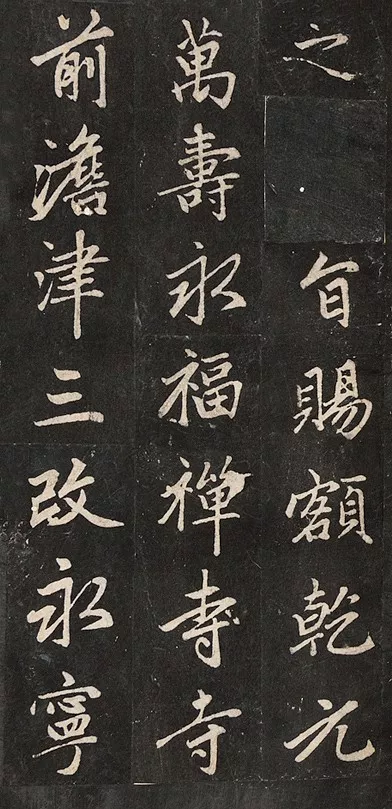 之旨賜額乾元
萬壽永福禪寺寺
前澹津三改永寧